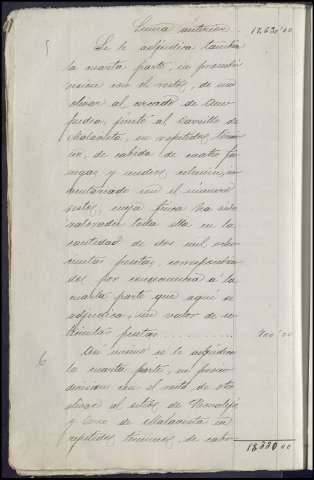 Suma anterior . . 12.630'00
5 Se le adjudica tambien
la cuarta parte, en proindi-
vision con el resto, de un
olivar al arcado de
junto al Carrillo de
Malacata, en repetidos termi-
nos, de cabida de cuatro fa-
negas y medio celemin, in-
ventariado con el número
sesto, cuya finca ha sido
valorada toda ella en la
cantidad de dos mil ocho-
cientas pesetas, correspondien-
dos por consecuencia á la
cuarta parte que aqui se
adjudica, un valor de se-
tecientas pesetas . . . . . . . . . . 700'00
6 Asi mismo se le adjudica
la cuarta parte, en proin-
division con el resto de otro
olivar al sitio, de
y de Malacata en
repetidos terminos, de cabi-
13330'00